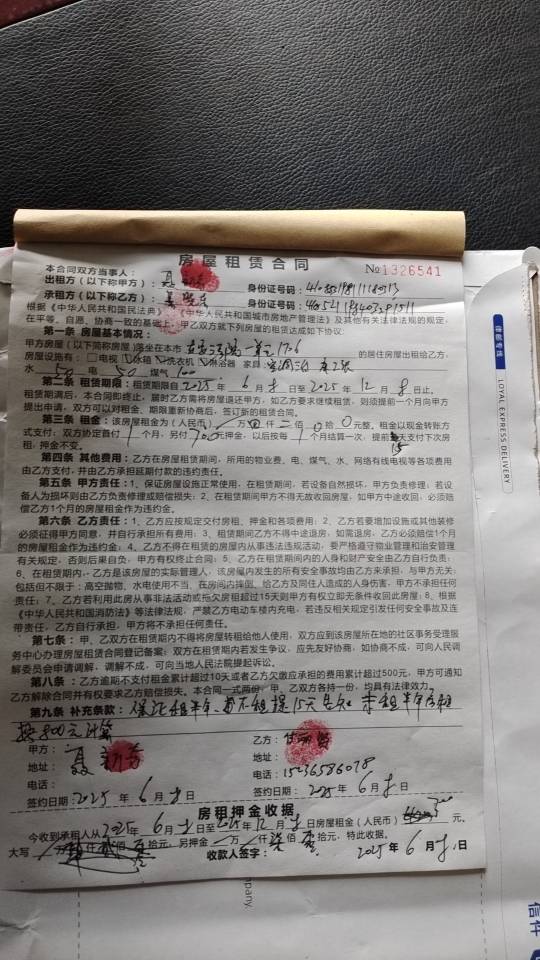 房屋租赁合同
本合同双方当事人：
№1326541
出租方（以下称甲方）：
身份证号码：
承租方（以下称乙方）：
身份证号码：
根据《中华人民共和国民法典》《中华人民共和国城市房地产管理法》及其他有关法律法规的规定，
在平等、自愿、协商一致的基础上，甲乙双方就下列房屋的租赁达成如下协议：
第一条 房屋基本情况：
甲方房屋（以下简称房屋）座坐在本市 的居住房出租给乙方，
房屋设施有：电视 冰箱 洗衣机 淋浴器 家具：空调
水 50 电 50 煤气 100
第二条 租赁期限：租赁期限自2025年6月8日至2025年12月8日止。
租赁期满后，本合同即终止，届时乙方需将房屋退还甲方，如乙方要求继续租赁，则须提前一个月向甲方
提出申请，双方可以对租金、期限重新协商后，签订新的租赁合同。
第三条 租金：该房屋租金为（人民币） 万 仟 二佰 0 拾 0 元整。租金以现金转账方
式支付；双方协定首付 1 个月，另付 700 元押金，以后按每 1 个月结算一次，提前 15 天支付下次房
租，押金不变。
第四条 其他费用：乙方在房屋租赁期间，所用的物业费、电、煤气、水、网络有线电视等各项费用
由乙方支付，并由乙方承担延期付款的违约责任。
第五条 甲方责任：1、保证房屋设施正常使用，在租赁期间，若设备自然损坏，甲方负责修理；若设
备人为损坏则由乙方负责修理或赔偿损失；2、在租赁期间甲方不得无故收回房屋，如甲方中途收回，必须赔
偿乙方1个月的房屋租金作为违约金。
第六条 乙方责任：1、乙方应按规定交付房租、押金和各项费用；2、乙方若要增加设施或其他装修
必须征得甲方同意，并自行承担所有费用；3、租赁期间乙方不得中途退房，如需退房，乙方必须赔偿1个月
的房屋租金作为违约金；4、乙方不得在租赁的房屋内从事违法违规活动，要严格遵守物业管理和治安管理
有关规定，否则后果自负，甲方有权终止合同；5、乙方在租赁期间内的人身和财产安全由乙方自行负责；
6、在租赁期内，乙方是该房屋的实际管理人，该房屋内发生的所有安全事故均由乙方来承担，与甲方无关，
包括但不限于：高空抛物、水电使用不当、在房间内摔倒、给乙方及同住人造成的人身伤害，甲方不承担任何
责任；7、乙方若利用此房从事非法活动或拖欠房租超过15天则甲方有权立即无条件收回此房屋；8、根据
《中华人民共和国消防法》等法律法规，严禁乙方电动车楼内充电，若违反相关规定引发任何安全事故及连
带责任，乙方自行承担，甲方将不承担任何责任。
第七条：甲、乙双方在租赁期内不得将房屋转租给他人使用，双方应到该房屋所在地的社区事务受理服
务中心办理房屋租赁合同登记备案；双方在租赁期内若发生争议，应先友好协商，如协商不成，可向人民调
解委员会申请调解，调解不成，可向当地人民法院提起诉讼。
第八条：乙方逾期不支付租金累计超过10天或者乙方欠缴应承担的费用累计超过500元，甲方可通知
乙方解除合同并有权要求乙方赔偿损失。本合同一式两份，甲、乙双方各持一份，均具有法律效力。
第九条 补充条款：保证租半年，若不租提15天告知 未租半年房租
按800元计算
甲方：
乙方：
地址：
地址：
电话：
电话：
签约日期：2025年6月8日
签约日期：2025年6月8日
房租押金收据
今收到承租人从2025年6月8日至2025年12月8日房屋租金（人民币） 元。
大写 拾元，另押金 万 仟 柒佰 零拾元，特此收据。
收款人签字：
2025年6月8日
LOYAL EXPRESS DELIVERY
信件